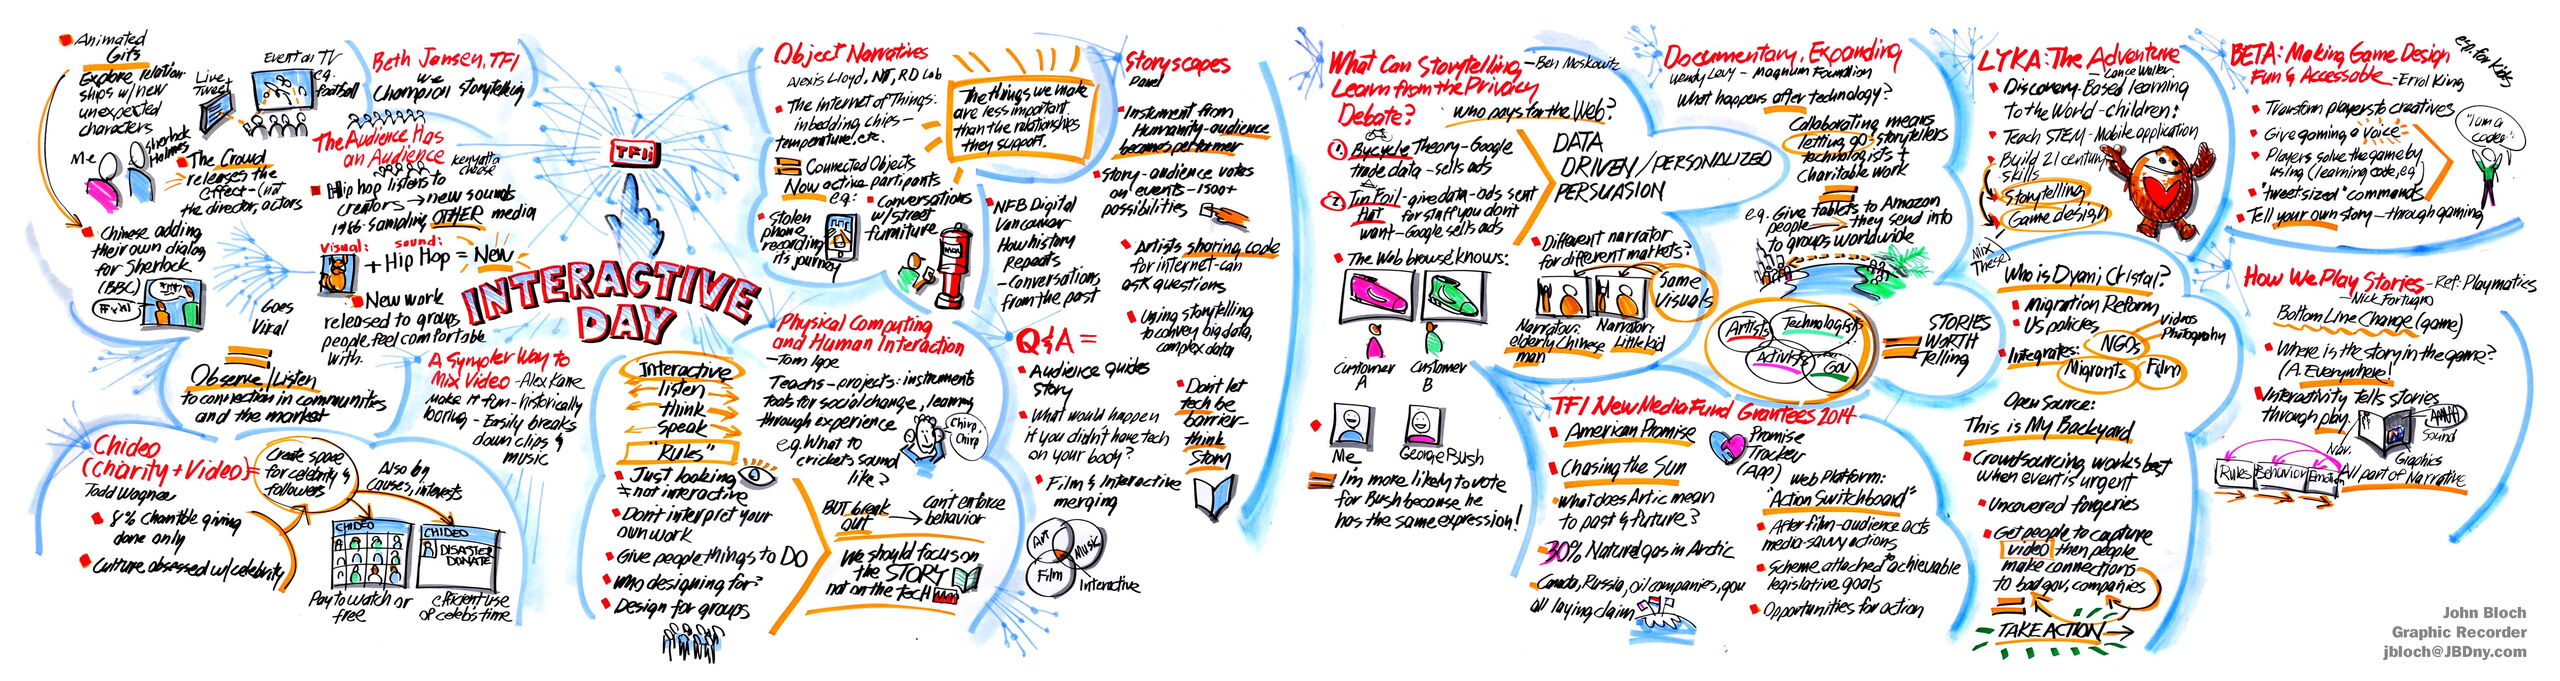 Animated
Gifs
Explore relation
ships w/ new
unexpected
characters
Me
Sherlock
Holmes
Live
Tweet
Event on TV
e.g.
football
The Crowd
releases the
effect - (not
the director, actors
Chinese adding
their own dialog
for Sherlock
(BBC)
Goes
Viral
Observe/Listen
to connection in communities
and the market
Beth Jansen, TFI
we
Champion storytelling
The Audience Has
an Audience
Kenyatta
Cheese
Hip hop listens to
creators → new sounds
1986-sampling OTHER media
visual: sound:
+ Hip Hop = New
New work
released to groups
people feel comfortable
with.
TFIi
INTERACTIVE
DAY
A Sympler Way to
Mix Video - Alex Kane
make it fun - historically
boring - Easily breaks
down clips &
music
Chideo
(Charity + Video) =
Todd Wagner
8% Charitble giving
done only
Culture obsessed w/ celebrity
Create space
for celebrity &
followers
Also by
causes, interests
CHIDEO
Pay to watch or
free
CHIDEO
DISASTER
DONATE
efficient use
of celebs time
Object Narratives
Alexis Lloyd, NT, RD Lab
The internet of Things:
inbedding chips -
temperature, etc.
= Connected Objects
Now active partipants
e.g:
Stolen
phone
recording
its journey
Conversations
w/ street
furniture
The things we make
are less important
than the relationships
they support.
NFB Digital
Vancouver
How history
Repeats
- Conversations
from the past
Storyscapes
Panel
Instument from
Humanity-audience
becomes performer
Story-audience votes
on events - 1500+
possibilities
Artists sharing code
for internet-can
ask questions
Using storytelling
to convey big data,
complex data
Interactive
listen
think
speak
"Rules"
Just looking
≠ not interactive
Don't interpret your
own work
Give people things to DO
Who designing for?
Design for groups
Physical Computing
and Human Interaction
- Tom Igoe
Teachs - projects: instruments
tools for social change, learning
through experience
e.g. What to
crickets sound
like?
Chirp,
Chirp
BUT break
out → can't enforce
behavior
We should focus on
the STORY
not on the tecH
Q&A =
Audience guides
story
What would happen
if you didn't have tech
on your body?
Film & Interactive
merging
Art
Music
Film
Interactive
Don't let
tech be
barrier-
think
Story
What Can Storytelling - Ben Moskowitz
Learn from the Privacy
Debate?
Who pays for the Web?
1 Bycycle Theory - Google
trade data - sells ads
2 Tin Foil - give data - ads sent
Hat for stuff you don't
want - Google sells ads
DATA
DRIVEN/PERSONALIZED
PERSUASION
The Web browse knows:
Customer
A
Customer
B
Different narrator
for different markets?
Same
Visuals
Narrator:
elderly Chinese
man
Narrator:
Little kid
Me
George Bush
= I'm more likely to vote
for Bush because he
has the same expression!
Documentary, Expanding
Wendy Levy - Magnum Foundation
What happens after technology?
Collaborating means
letting go storytellers
technologists +
charitable work
e.g. Give tablets to Amazon
people → they send into
to groups worldwide
Artists
Technologists
Activists
Gov
= STORIES
WORTH
Telling
TFI New Media Fund Grantees 2014
American Promise
Promise
Tracker
(App)
Chasing the Sun
What does Artic mean
to past & future?
30% Natural gas in Arctic
Canada, Russia, oil companies, gov
all laying claim
Web Platform:
"Action Switchboard"
After film-audience acts
media-savvy actions
Scheme attached to achievable
legislative goals
Opportunities for action
LYKA: The Adventure
- Lance Weiler
Discovery-Based learning
to the World-children:
Teach STEM - Mobile application
Build 21 century
skills
Storytelling
Game design
Mix
These!
Who is Dyani Cristal?
Migration Reform
US policies
Integrates:
NGOs
Videos
Photography
Migrants
Film
Open Source:
This is My Backyard
Crowdsourcing works best
when event is urgent
Uncovered forgeries
Get people to capture
video then people
make connections
to bad gov, companies
=
TAKE ACTION →
BETA: Making Game Design
Fun & Accessable - Errol King
esp. for kids
Transform players to creatives
Give gaming a voice
Players solve the game by
using (learning code, eg)
"tweet sized" commands
Tell your own story - through gaming
"I am a
coder"
How We Play Stories - Ref: Playmatics
- Nick Fortugno
Bottom Line Change (game)
Where is the story in the game?
(A. Everywhere!
Interactivity tells stories
through play.
Nav.
Sound
Graphics
Rules
Behavior
Emotion
All part of Narrative
John Bloch
Graphic Recorder
jbloch@JBDny.com